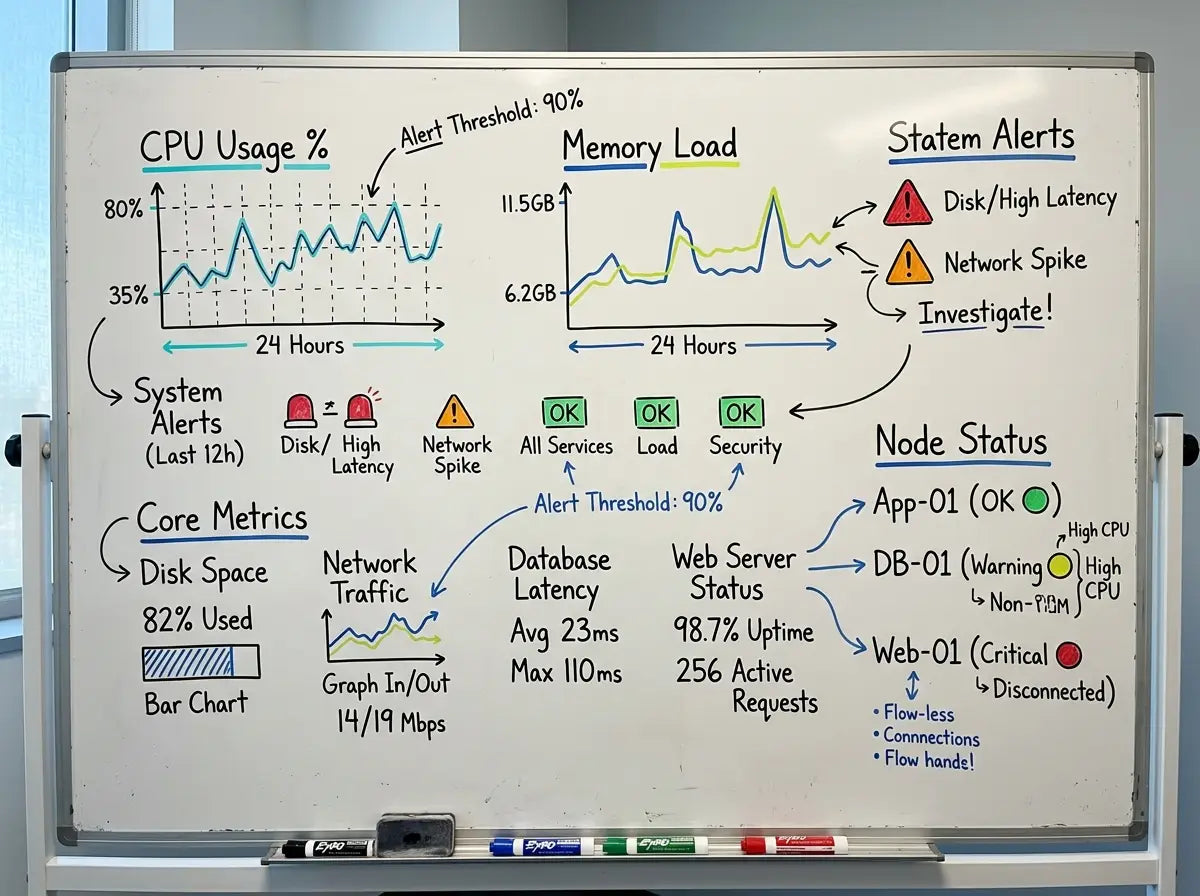 Alert Threshold: 90%
CPU Usage %
80%
35%
24 Hours
Memory Load
11.5GB
6.2GB
24 Hours
Statem Alerts
Disk/High Latency
Network Spike
Investigate!
System
Alerts
(Last 12h)
Disk/ High
Latency
Network
Spike
OK
All Services
OK
Load
OK
Security
Alert Threshold: 90%
Core Metrics
Disk Space
82% Used
Bar Chart
Network
Traffic
Graph In/Out
14/19 Mbps
Database
Latency
Avg 23ms
Max 110ms
Web Server
Status
98.7% Uptime
256 Active
Requests
Node Status
App-01 (OK )
High CPU
DB-01 (Warning
High
CPU
Web-01 (Critical
Disconnected)
• Flow-less
• Connnections
• Flow hands!
EXPO
EXPO
EXPO
EXPO